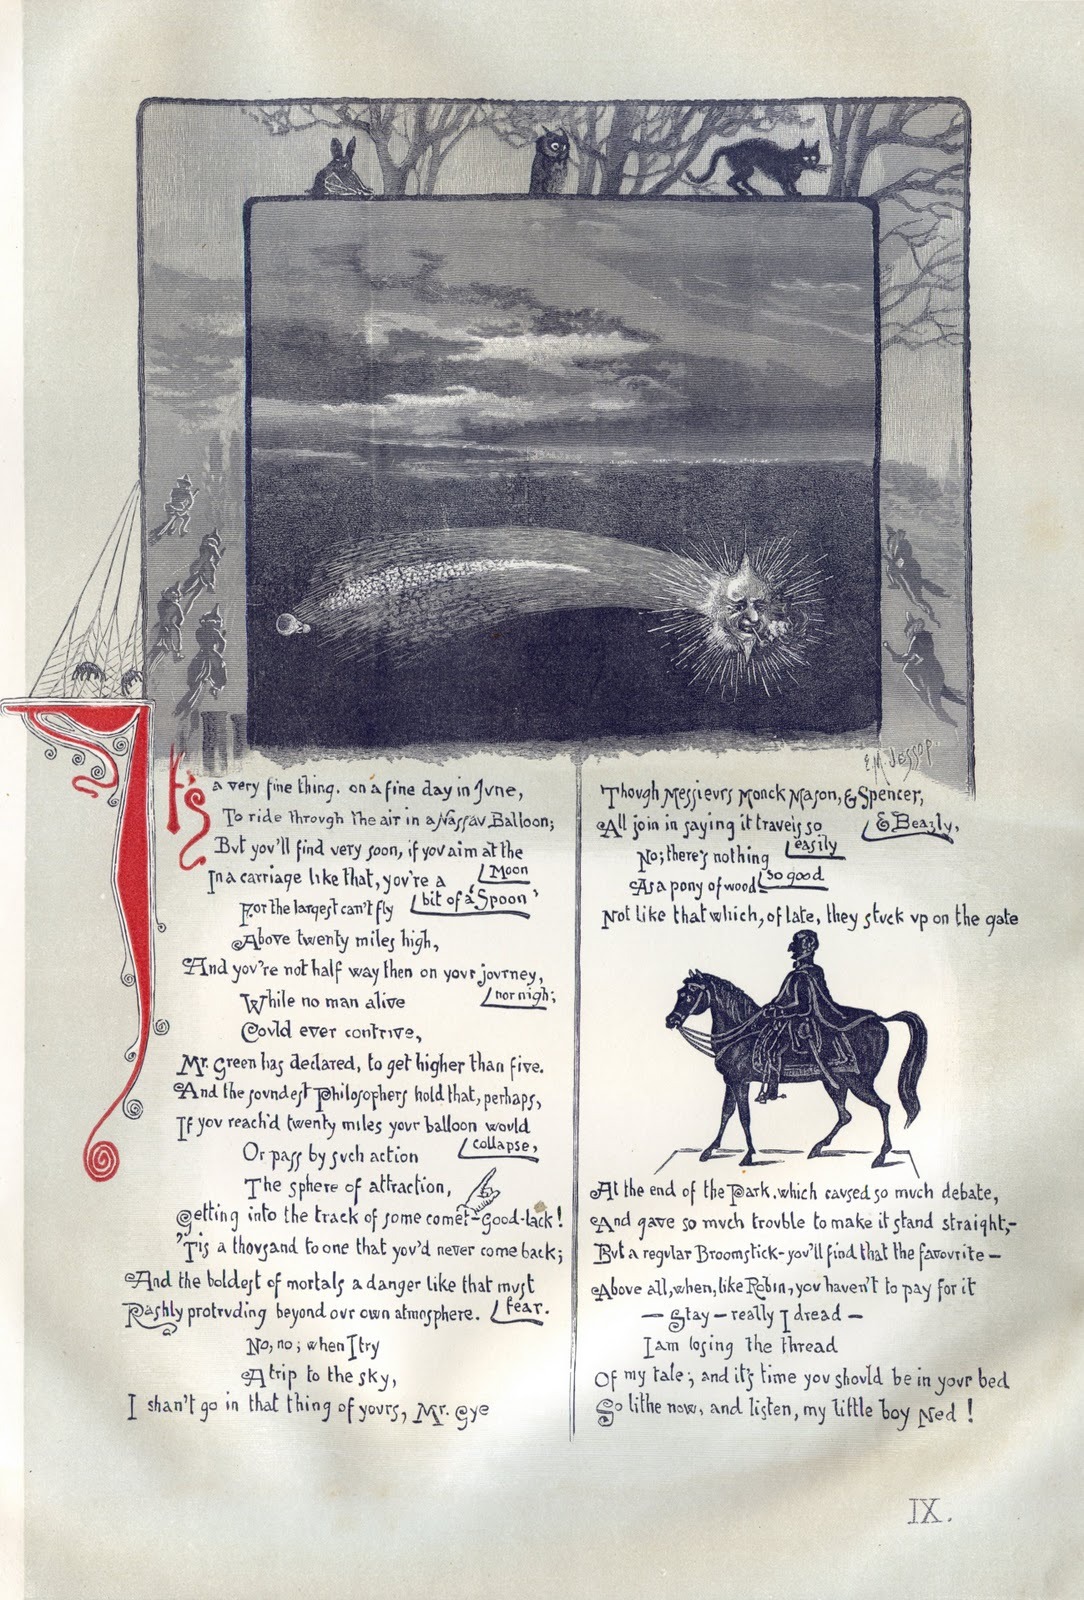 E.M. Jessop.
It's
a very fine thing. on a fine day in June,
To ride through the air in a Nassau Balloon;
But you'll find very soon, if you aim at the
Moon
In a carriage like that, you're a
bit of a 'Spoon'
For the largest can't fly
Above twenty miles high,
And you're not half way then on your journey,
nor nigh;
While no man alive
Could ever contrive,
Mr. Green has declared, to get higher than five.
And the soundest Philosophers hold that, perhaps,
If you reach'd twenty miles your balloon would
collapse,
Or pass by such action
The sphere of attraction,
Getting into the track of some comet-Good-lack!
'Tis a thousand to one that you'd never come back;
And the boldest of mortals a danger like that must
fear.
Rashly protruding beyond our own atmosphere.
No, no; when I try
A trip to the sky,
I shan't go in that thing of yours, Mr. Gye
Though Messieurs Monck Mason, & Spencer,
& Beazly,
All join in saying it travels so
easily
No; there's nothing
so good
As a pony of wood-
Not like that which, of late, they stuck up on the gate
At the end of the Park. which caused so much debate,
And gave so much trouble to make it stand straight,-
But a regular Broomstick-you'll find that the favourite-
Above all, when, like Robin, you haven't to pay for it
-Stay-really I dread-
I am losing the thread
Of my tale; and it's time you should be in your bed
So lithe now, and listen, my little boy Ned!
IX.